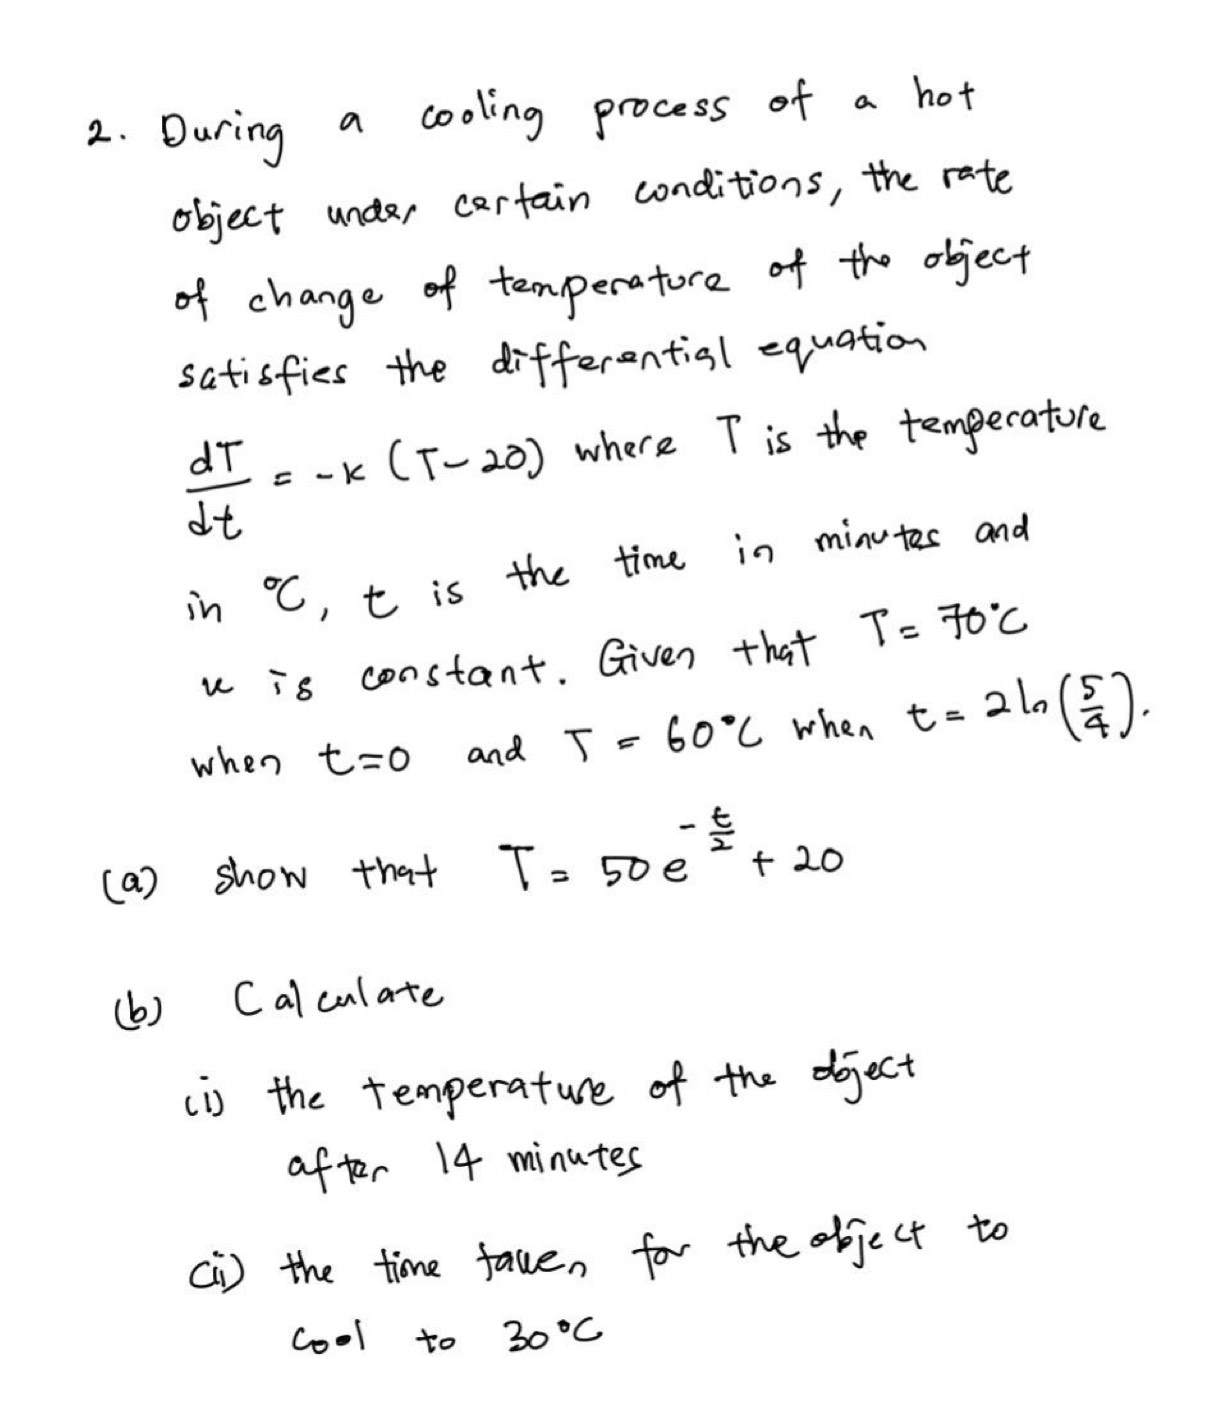 2. During a cooling process of a hot
object under certain conditions, the rate
of change of temperature of the object
satisfies the differential equation
dT/dt = -k (T-20) where T is the temperature
in °C, t is the time in minutes and
k is constant. Given that T = 70°C
when t=0 and T = 60°C when t = 2 ln(5/4).
(a) show that T = 50e^(-t/2) + 20
(b) Calculate
(i) the temperature of the object
after 14 minutes
(ii) the time taken for the object to
cool to 30°C